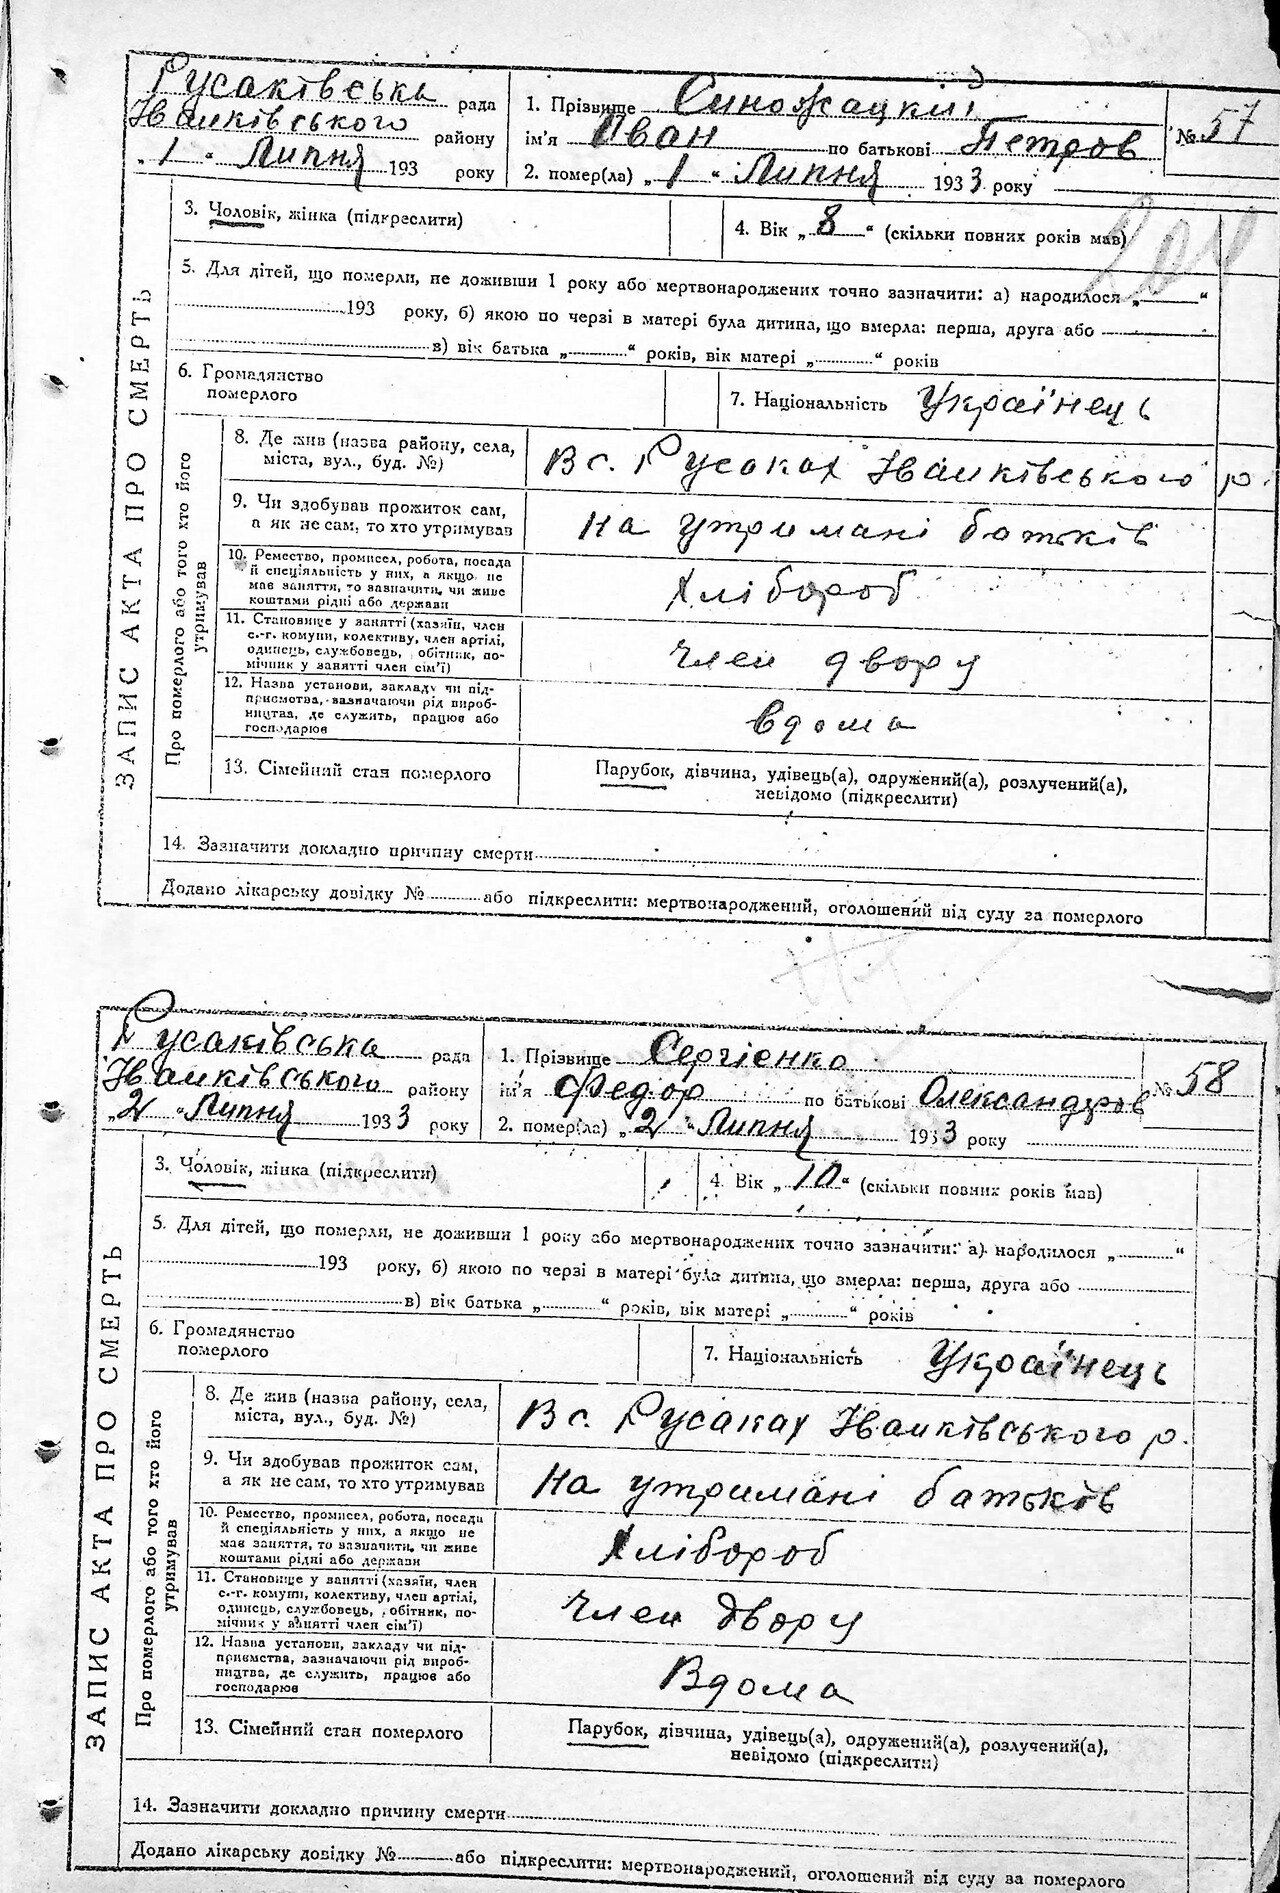 Русаківська рада
Іванківського району
„1“ Липня 193 року
1. Прізвище Синожацкий
ім'я Иван по батькові Петров
2. помер(ла) „1“ Липня 1933 року
№ 57
3. Чоловік, жінка (підкреслити)
4. Вік „8“ (скільки повних років мав)
5. Для дітей, що померли, не доживши 1 року або мертвонароджених точно зазначити: а) народилося „ “
193 року, б) якою по черзі в матері була дитина, що вмерла: перша, друга або
в) вік батька „ “ років, вік матері „ “ років
6. Громадянство
померлого
7. Національність Українець
ЗАПИС АКТА ПРО СМЕРТЬ
Про померлого або того хто його
утримував
8. Де жив (назва району, села,
міста, вул., буд. №)
В с. Русаках Іванківського р.
9. Чи здобував прожиток сам,
а як не сам, то хто утримував
На утримані батьків
10. Ремество, промисел, робота, посада
й спеціяльність у них, а якщо не
мав заняття, то зазначити, чи живе
коштами рідні або держави
Хлібороб
11. Становище у занятті (хазяїн, член
с.-г. комуни, колективу, член артілі,
одинець, службовець, обітник, по-
мічник у занятті член сім'ї)
Член двору
12. Назва установи, закладу чи під-
приємства, зазначаючи рід вироб-
ництва, де служить, працює або
господарює
вдома
13. Сімейний стан померлого
Парубок, дівчина, удівець(а), одружений(а), розлучений(а),
невідомо (підкреслити)
14. Зазначити докладно причину смерти
Додано лікарську довідку № або підкреслити: мертвонароджений, оголошений від суду за померлого
Русаківська рада
Іванківського району
„2“ Липня 1933 року
1. Прізвище Сергієнко
ім'я Федор по батькові Олександров
2. помер(ла) „2“ Липня 1933 року
№ 58
3. Чоловік, жінка (підкреслити)
4. Вік „10“ (скільки повних років мав)
5. Для дітей, що померли, не доживши 1 року або мертвонароджених точно зазначити: а) народилося „ “
193 року, б) якою по черзі в матері була дитина, що вмерла: перша, друга або
в) вік батька „ “ років, вік матері „ “ років
6. Громадянство
померлого
7. Національність Українець
ЗАПИС АКТА ПРО СМЕРТЬ
Про померлого або того хто його
утримував
8. Де жив (назва району, села,
міста, вул., буд. №)
В с. Русаках Іванківського р.
9. Чи здобував прожиток сам,
а як не сам, то хто утримував
На утримані батьків
10. Ремество, промисел, робота, посада
й спеціяльність у них, а якщо не
мав заняття, то зазначити, чи живе
коштами рідні або держави
Хлібороб
11. Становище у занятті (хазяїн, член
с.-г. комуни, колективу, член артілі,
одинець, службовець, обітник, по-
мічник у занятті член сім'ї)
Член двору
12. Назва установи, закладу чи під-
приємства, зазначаючи рід вироб-
ництва, де служить, працює або
господарює
Вдома
13. Сімейний стан померлого
Парубок, дівчина, удівець(а), одружений(а), розлучений(а),
невідомо (підкреслити)
14. Зазначити докладно причину смерти
Додано лікарську довідку № або підкреслити: мертвонароджений, оголошений від суду за померлого